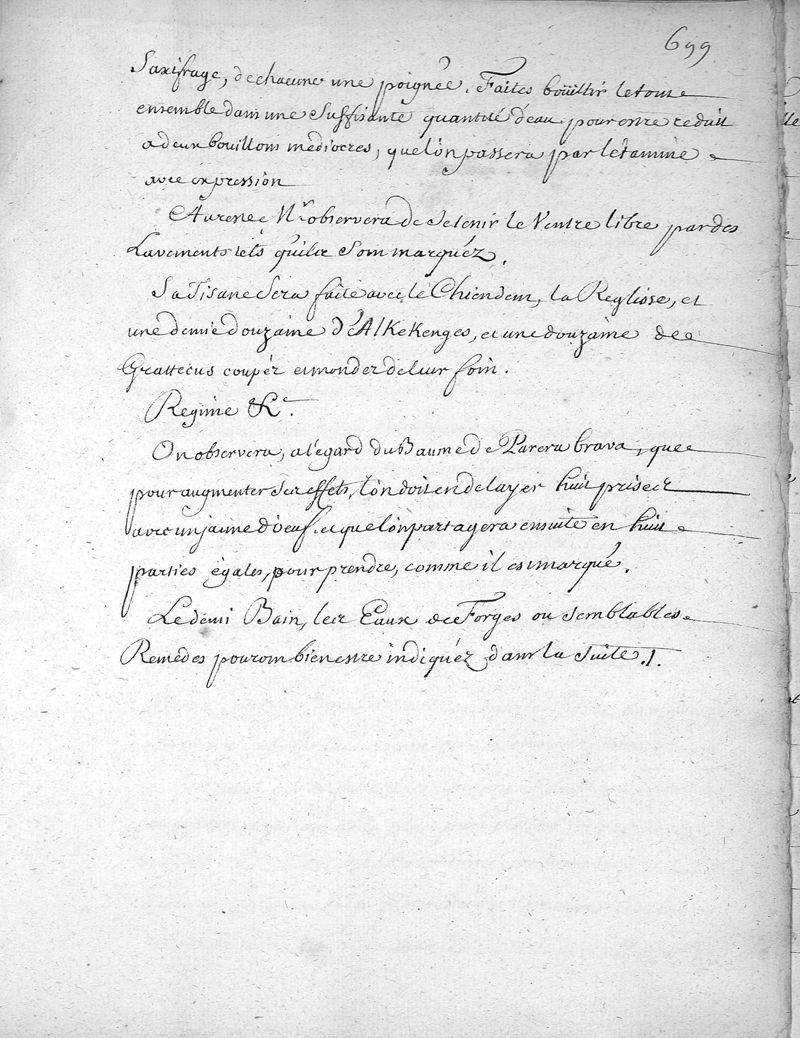 699
Saxifrage, de chacune une poignée. Faites boüillir le tout
ensemble dans une Suffisante quantité d'eau pour estre reduit
a deux bouillons mediocres, que l'on passera par l'étamine
avec expression
Au reste Mr. observera de Se tenir le Ventre libre par des
Lavements tels qu'ils Sont marquéz.
Sa Tisane Sera faite avec le Chiendent, la Reglisse, et
une demie douzaine d'Alkekenges, et une douzaine de
Grattecus coupéz et mondez de leur foin.
Regime &c.
On observera, a l'égard du Baume de Parera brava, que
pour augmenter Ses effets, l'on doit en delayer huit prises
avec un jaune d'oeuf, et que l'on partagera ensuite en huit
parties égales, pour prendre, comme il est marqué.
Le demi Bain, les Eaux de Forges ou Semblables
Remédes pouront bien estre indiquéz dans la Suite ./.